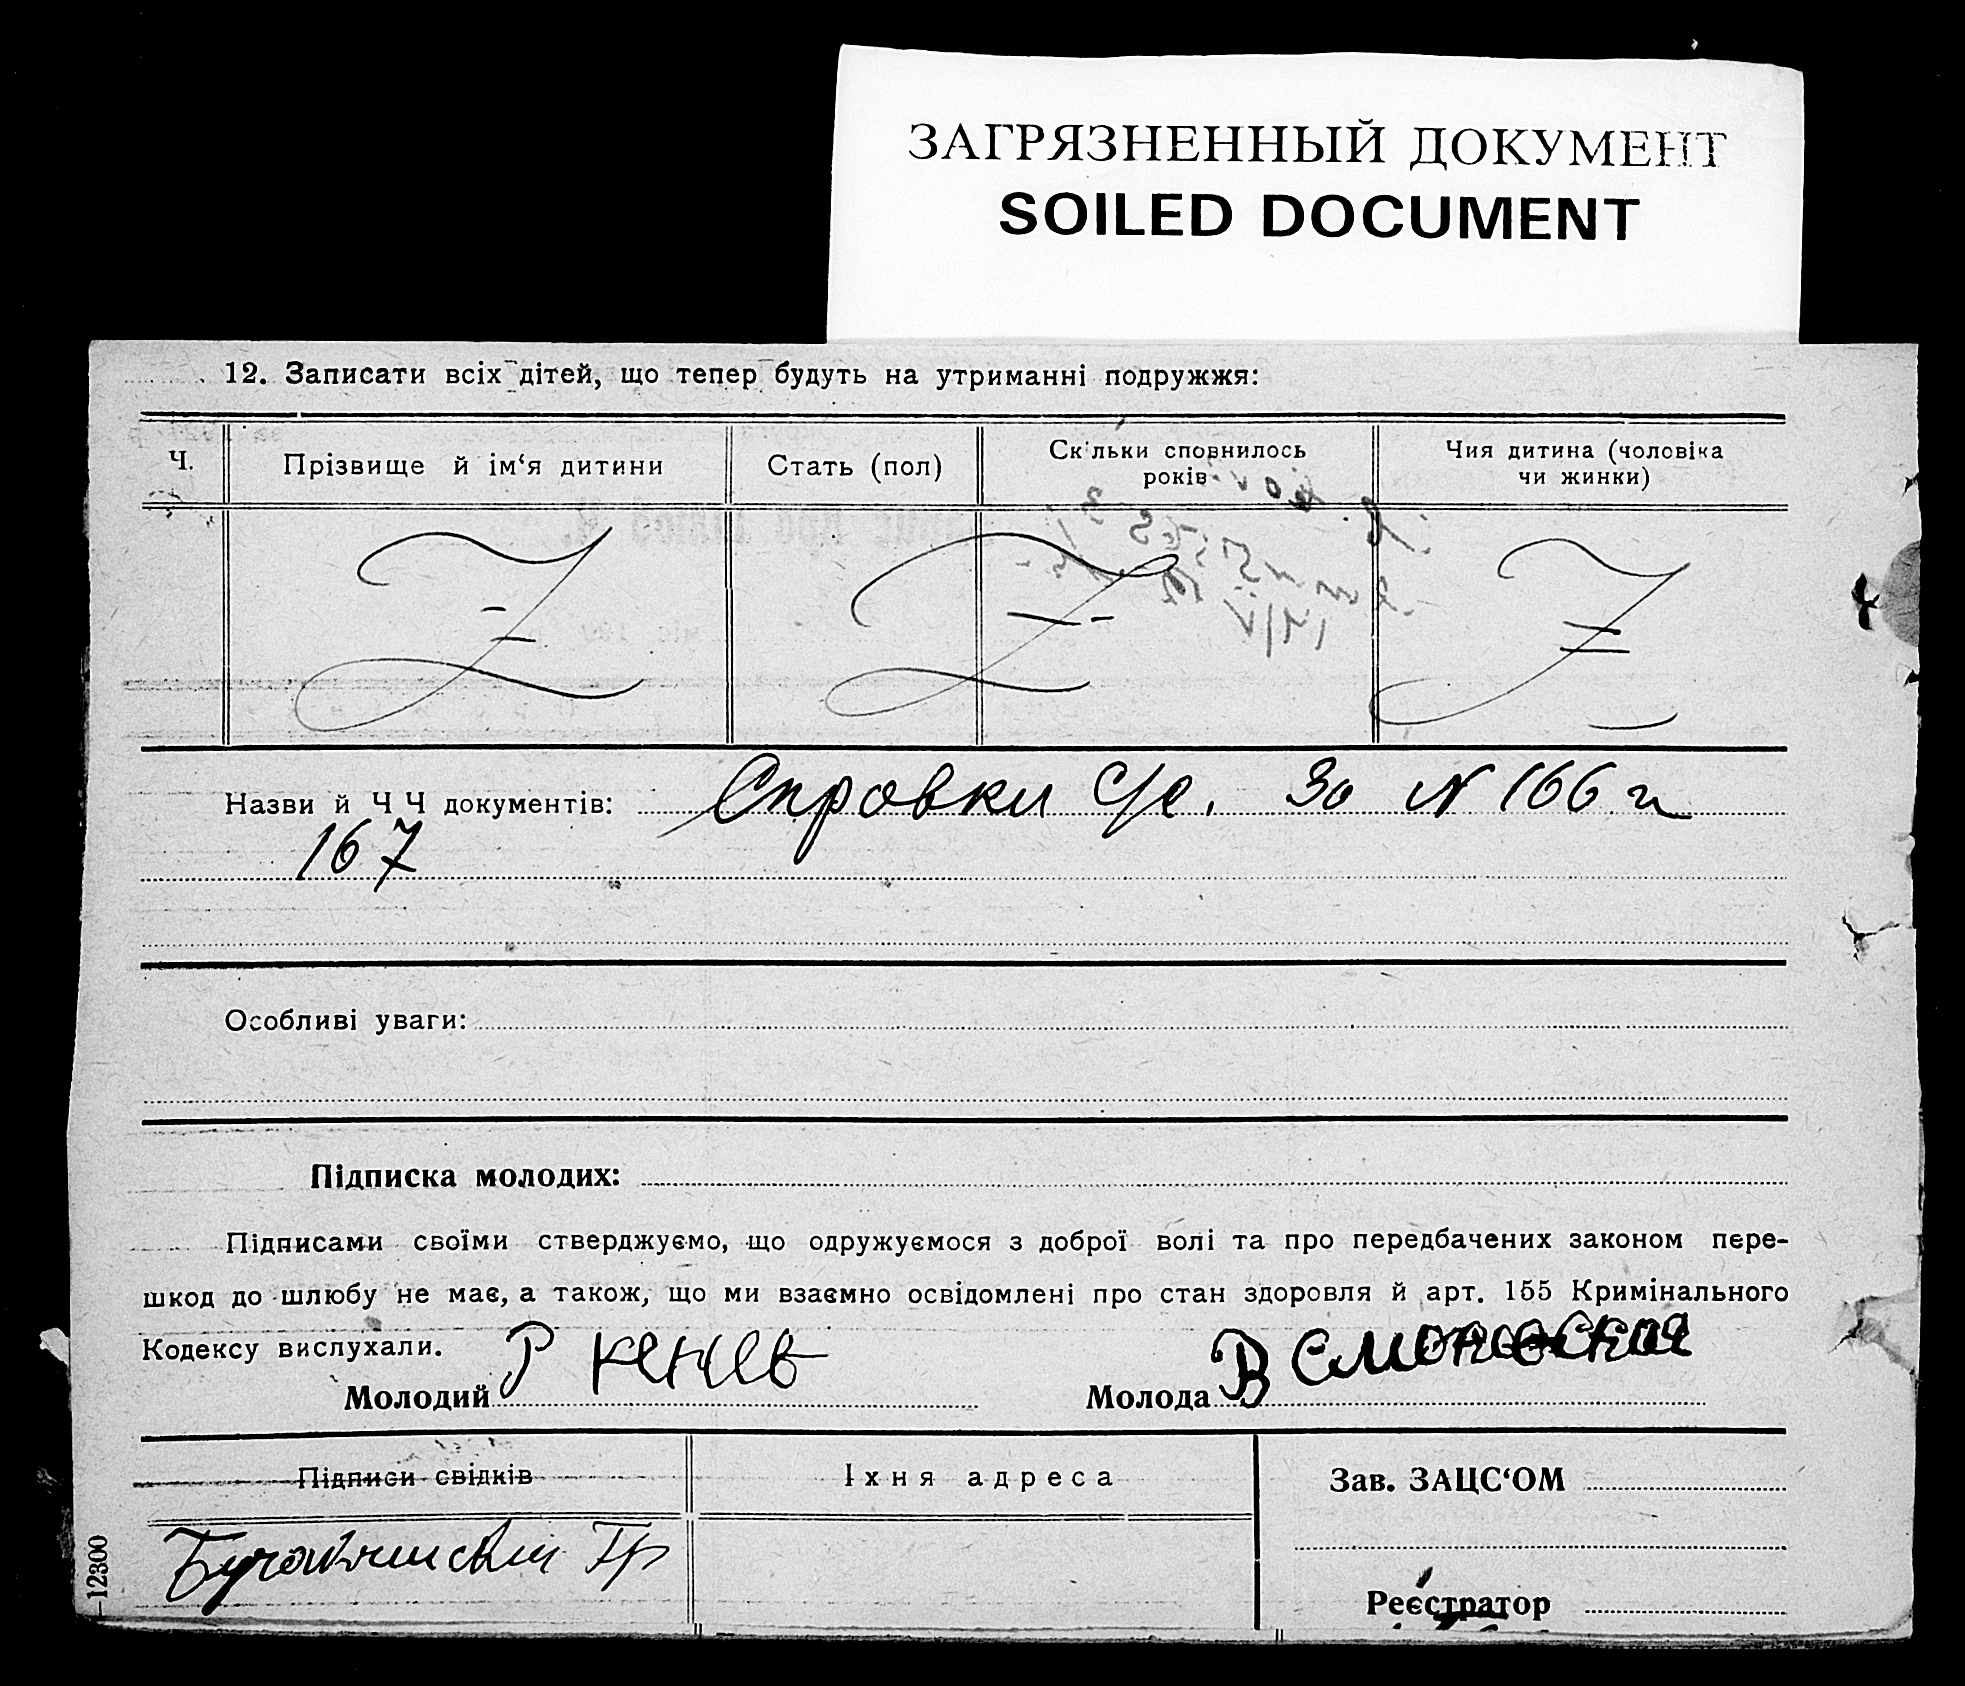 ЗАГРЯЗНЕННЫЙ ДОКУМЕНТ
SOILED DOCUMENT
12. Записати всіх дітей, що тепер будуть на утриманні подружжя:
Ч. Прізвище й ім‘я дитини Стать (пол) Скільки сповнилось років Чия дитина (чоловіка чи жинки)
Назви й Ч Ч документів: Справки С/с. За N 166 и
167
Особливі уваги:
Підписка молодих:
Підписами своїми стверджуємо, що одружуємося з доброї волі та про передбачених законом пере-
шкод до шлюбу не має, а також, що ми взаємно освідомлені про стан здоровля й арт. 155 Кримінального
Кодексу вислухали.
Молодий Р Кенєв Молода В
Підписи свідків Їхня адреса Зав. ЗАЦС‘ОМ
Гр
Реєстратор
–12300